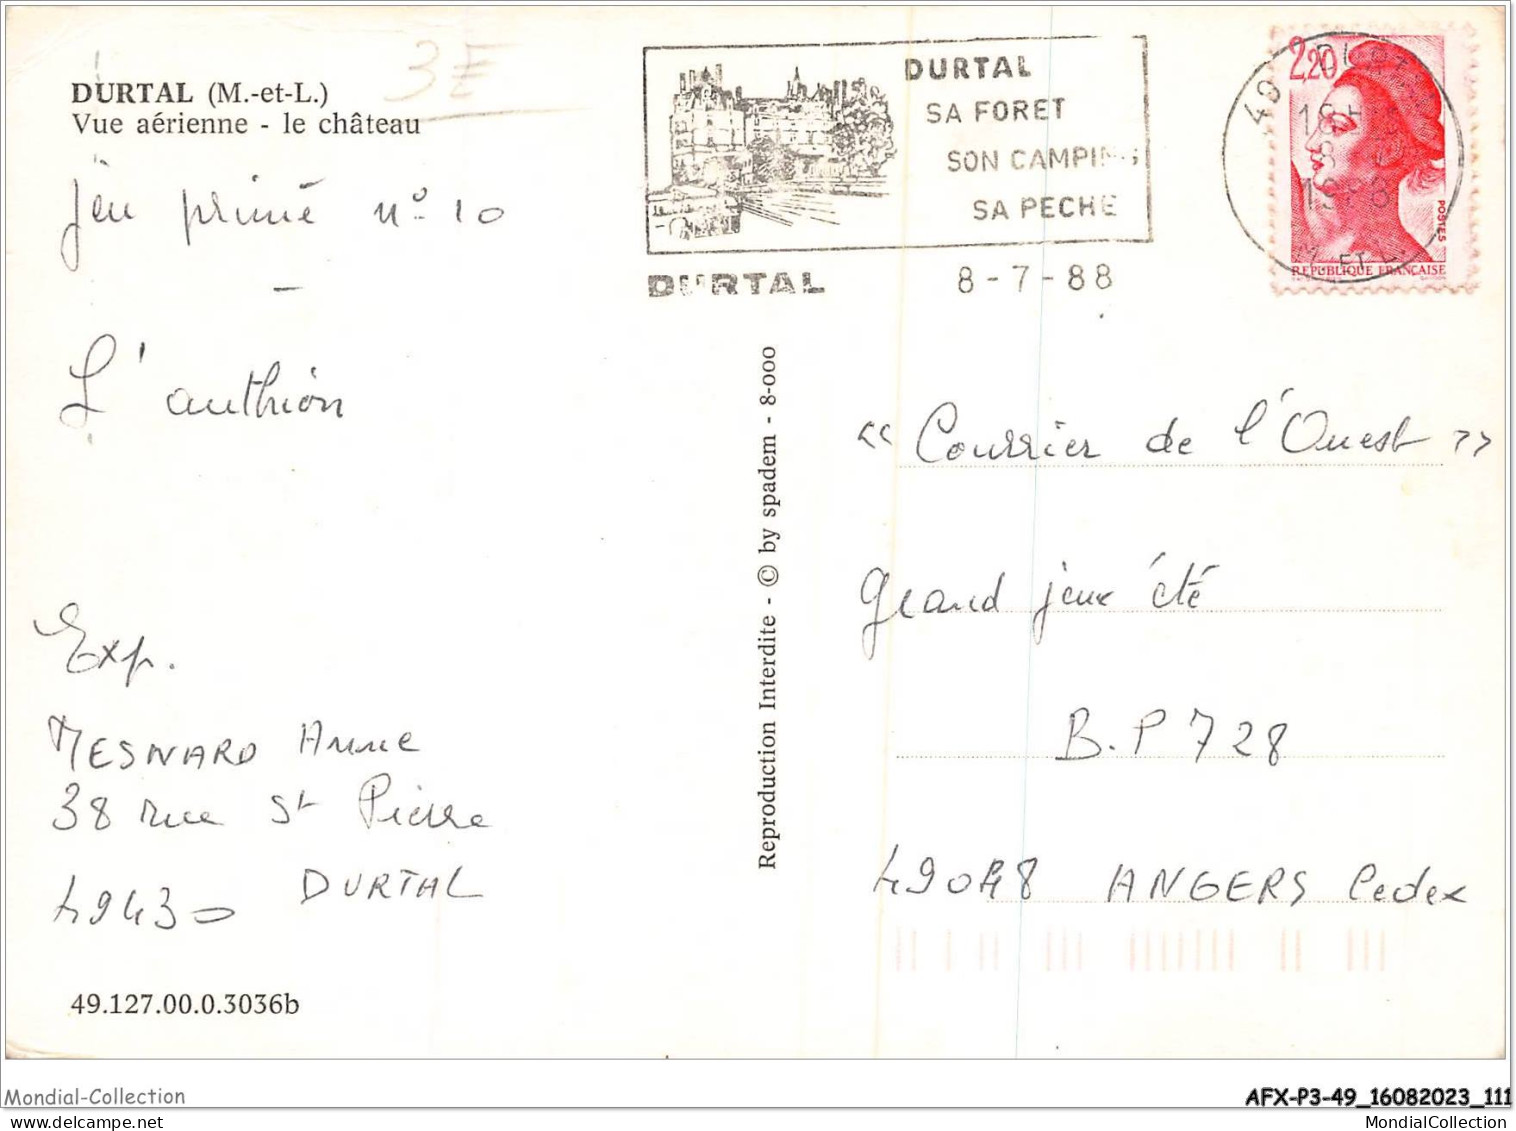 3E
DURTAL (M.-et-L.)
Vue aérienne - le château
jeu primé n° 10
-
L'authion
Exp.
MESNARD Anne
38 rue St Pierre
49430 DURTAL
49.127.00.0.3036b
Reproduction Interdite - © by spadem - 8-000
DURTAL
SA FORET
SON CAMPING
SA PECHE
DURTAL 8-7-88
49 DURTAL
18H
8-7
1988
M. ET L.
2,20
POSTES
REPUBLIQUE FRANÇAISE
« Courrier de l'Ouest »
Grand jeux été
B.P 728
49048 ANGERS Cedex
Mondial-Collection
AFX-P3-49_16082023_111
MondialCollection